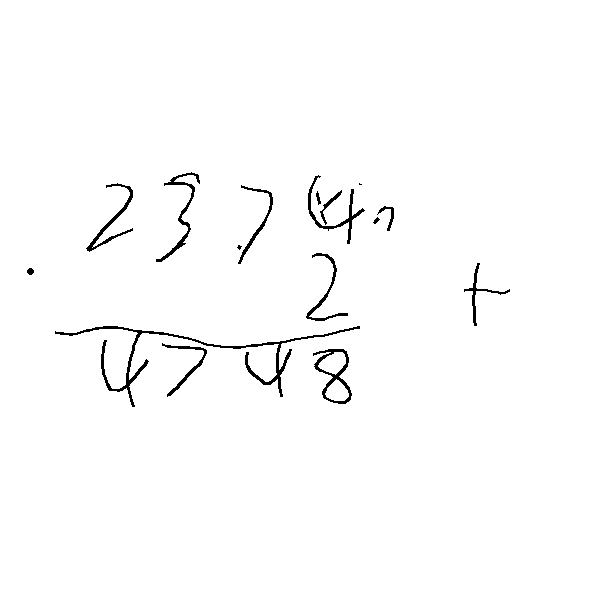 2374
· 2 +
4748